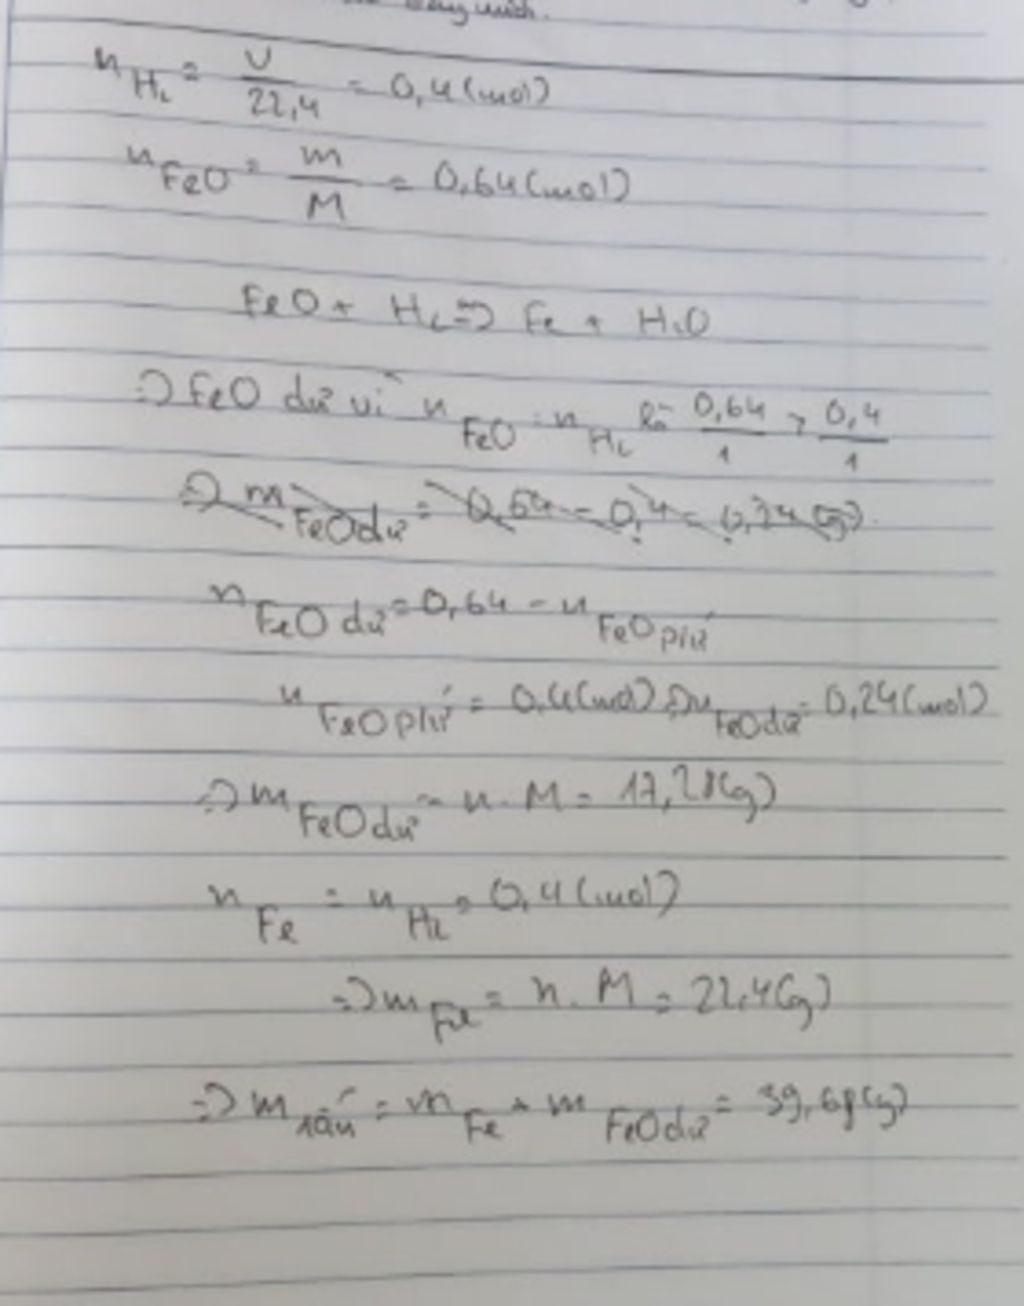 dung dịch.
n H2 = V / 22,4 = 0,4 (mol)
n FeO = m / M = 0,64 (mol)
FeO + H2 => Fe + H2O
=> FeO dư vì n FeO : n H2 là 0,64 / 1 > 0,4 / 1
=> m FeO dư = 0,64 - 0,4 = 0,24 (g)
n FeO dư = 0,64 - n FeO pứ
n FeO pứ = 0,4 (mol) => n FeO dư = 0,24 (mol)
=> m FeO dư = n . M = 17,28 (g)
n Fe = n H2 = 0,4 (mol)
=> m Fe = n . M = 22,4 (g)
=> m rắn = m Fe + m FeO dư = 39,68 (g)